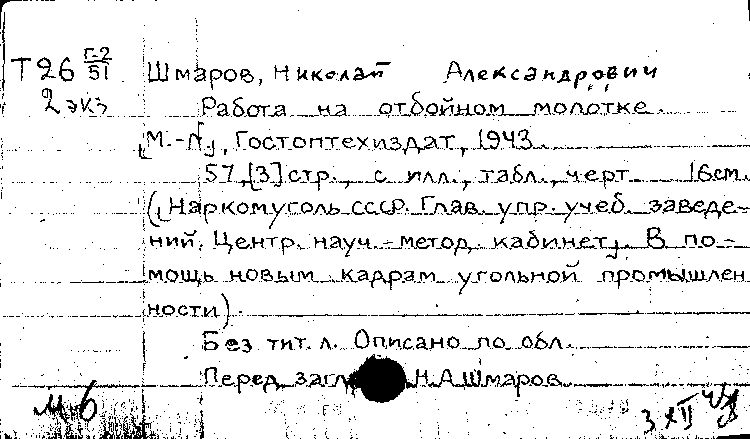 Т26 Г-2/51 Шмаров, Николай Александрович
2 экз Работа на отбойном молотке.
[М.-Л], Гостоптехиздат, 1943.
57,[3] стр., с илл., табл., черт. 16см.
([Наркомуголь СССР. Глав. упр. учеб. заведе-
ний. Центр. науч.-метод. кабинет]. В по-
мощь новым кадрам угольной промышлен
ности).
Без тит. л. Описано по обл.
Перед загл. Н.А.Шмаров
М 6
3 XII